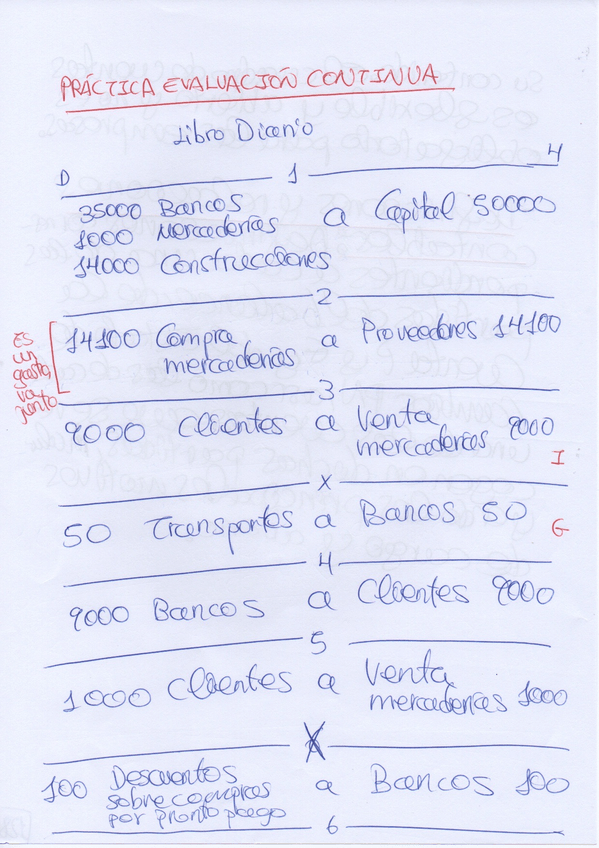 PRÁCTICA EVALUACIÓN CONTINUA
Libro Diario
D 1 H
35000 Bancos a Capital 50000
1000 Mercaderías
14000 Construcciones
2
14100 Compra a Proveedores 14100
mercaderías
Es un gasto, va junto
3
9000 Clientes a Venta
mercaderías 9000
I
X
50 Transportes a Bancos 50 G
4
9000 Bancos a Clientes 9000
5
1000 Clientes a Venta
mercaderías 1000
X
100 Descuentos a Bancos 100
sobre compras
por pronto pago
6